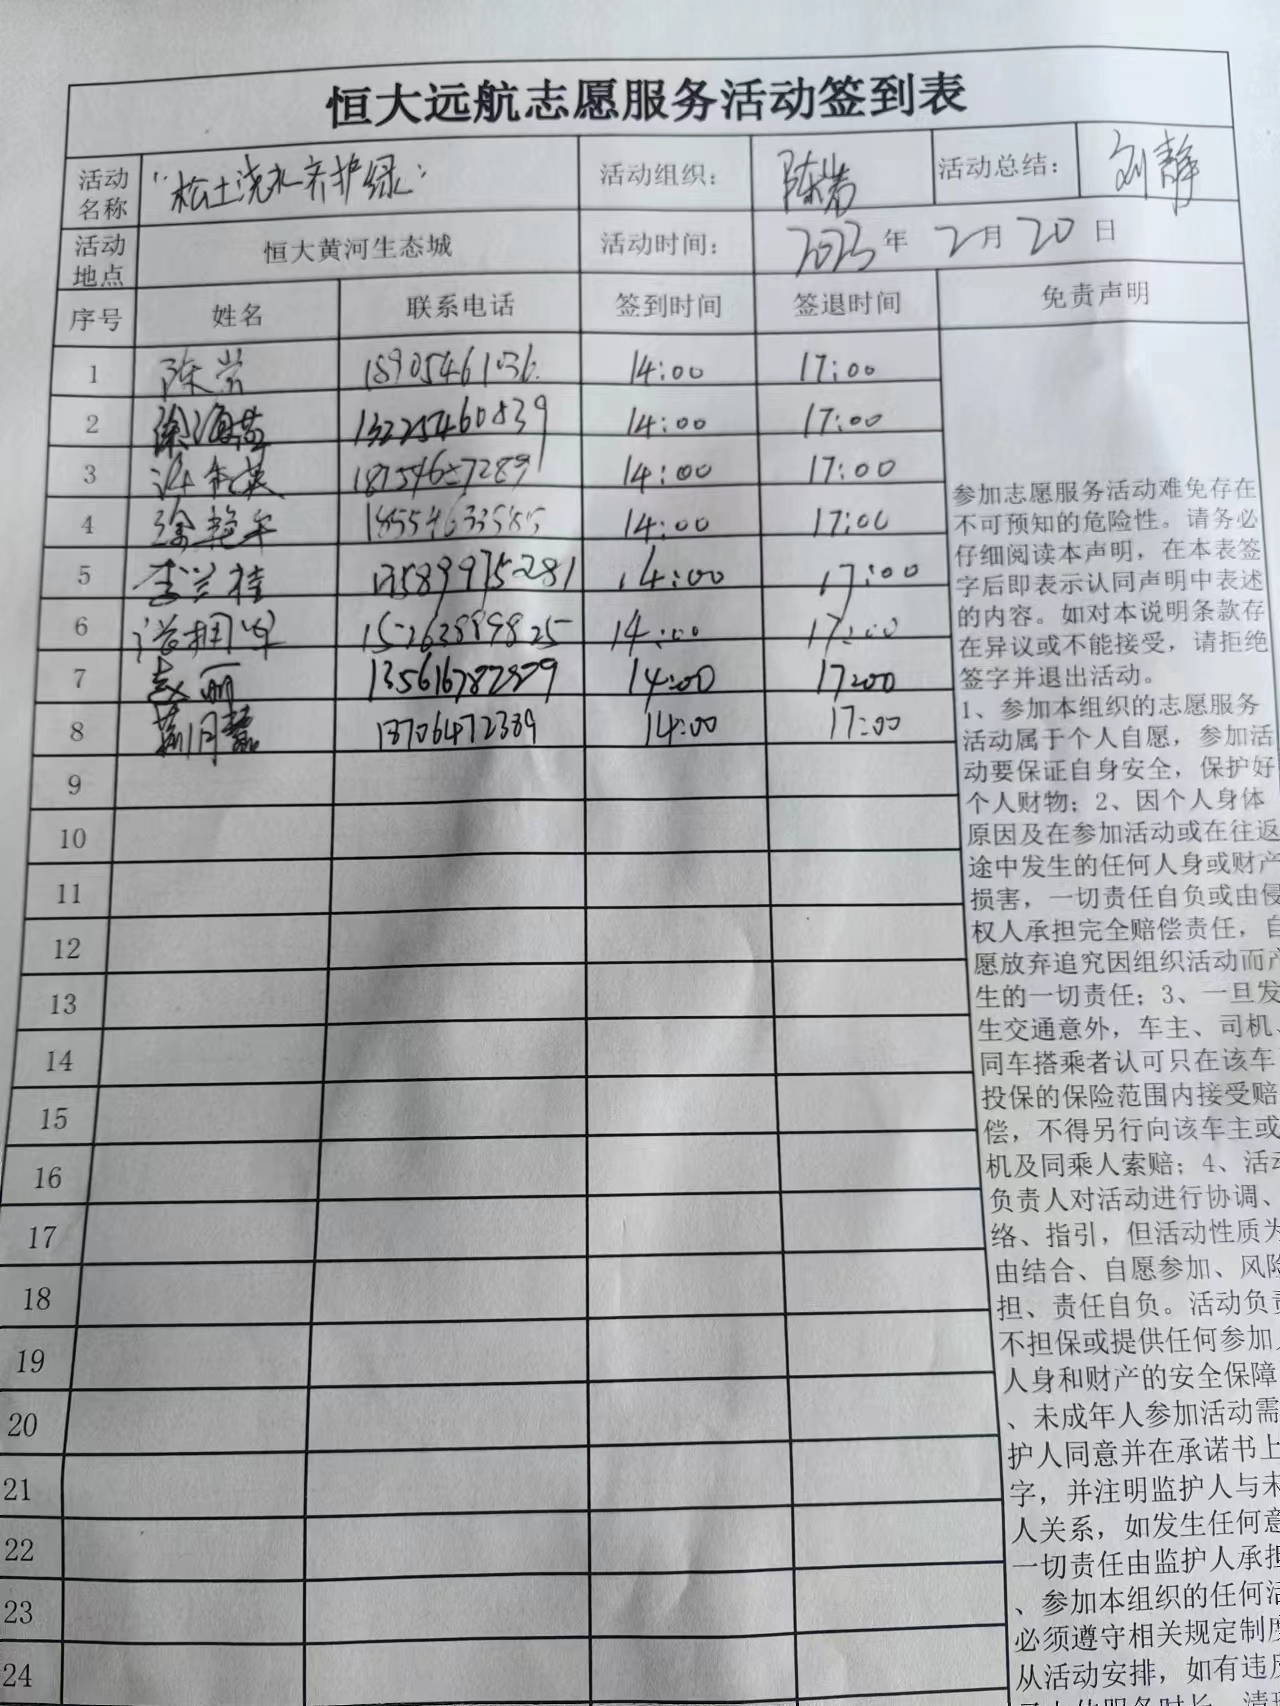 恒大远航志愿服务活动签到表
活动名称 "松土浇水养护绿" 活动组织： 活动总结： 刘静
活动地点 恒大黄河生态城 活动时间： 2023年 2月 20日
序号 姓名 联系电话 签到时间 签退时间 免责声明
1 陈岩 18905461036. 14:00 17:00
2 13225460839 14:00 17:00
3 14:00 17:00
4 徐艳军 14:00 17:00
5 李兰桂 13589975281 14:00 17:00
6 15263899825 14:00 17:00
7 赵丽 14:00 17:00
8 13706472389 14:00 17:00
9
10
11
12
13
14
15
16
17
18
19
20
21
22
23
24
参加志愿服务活动难免存在
不可预知的危险性。请务必
仔细阅读本声明，在本表签
字后即表示认同声明中表述
的内容。如对本说明条款存
在异议或不能接受，请拒绝
签字并退出活动。
1、参加本组织的志愿服务
活动属于个人自愿，参加活
动要保证自身安全，保护好
个人财物；2、因个人身体
原因及在参加活动或在往返
途中发生的任何人身或财产
损害，一切责任自负或由侵
权人承担完全赔偿责任，自
愿放弃追究因组织活动而产
生的一切责任；3、一旦发
生交通意外，车主、司机、
同车搭乘者认可只在该车
投保的保险范围内接受赔
偿，不得另行向该车主或
机及同乘人索赔；4、活动
负责人对活动进行协调、
络、指引，但活动性质为
由结合、自愿参加、风险
担、责任自负。活动负责
不担保或提供任何参加
人身和财产的安全保障
、未成年人参加活动需
护人同意并在承诺书上
字，并注明监护人与未
人关系，如发生任何意
一切责任由监护人承担
、参加本组织的任何活
必须遵守相关规定制度
从活动安排，如有违反